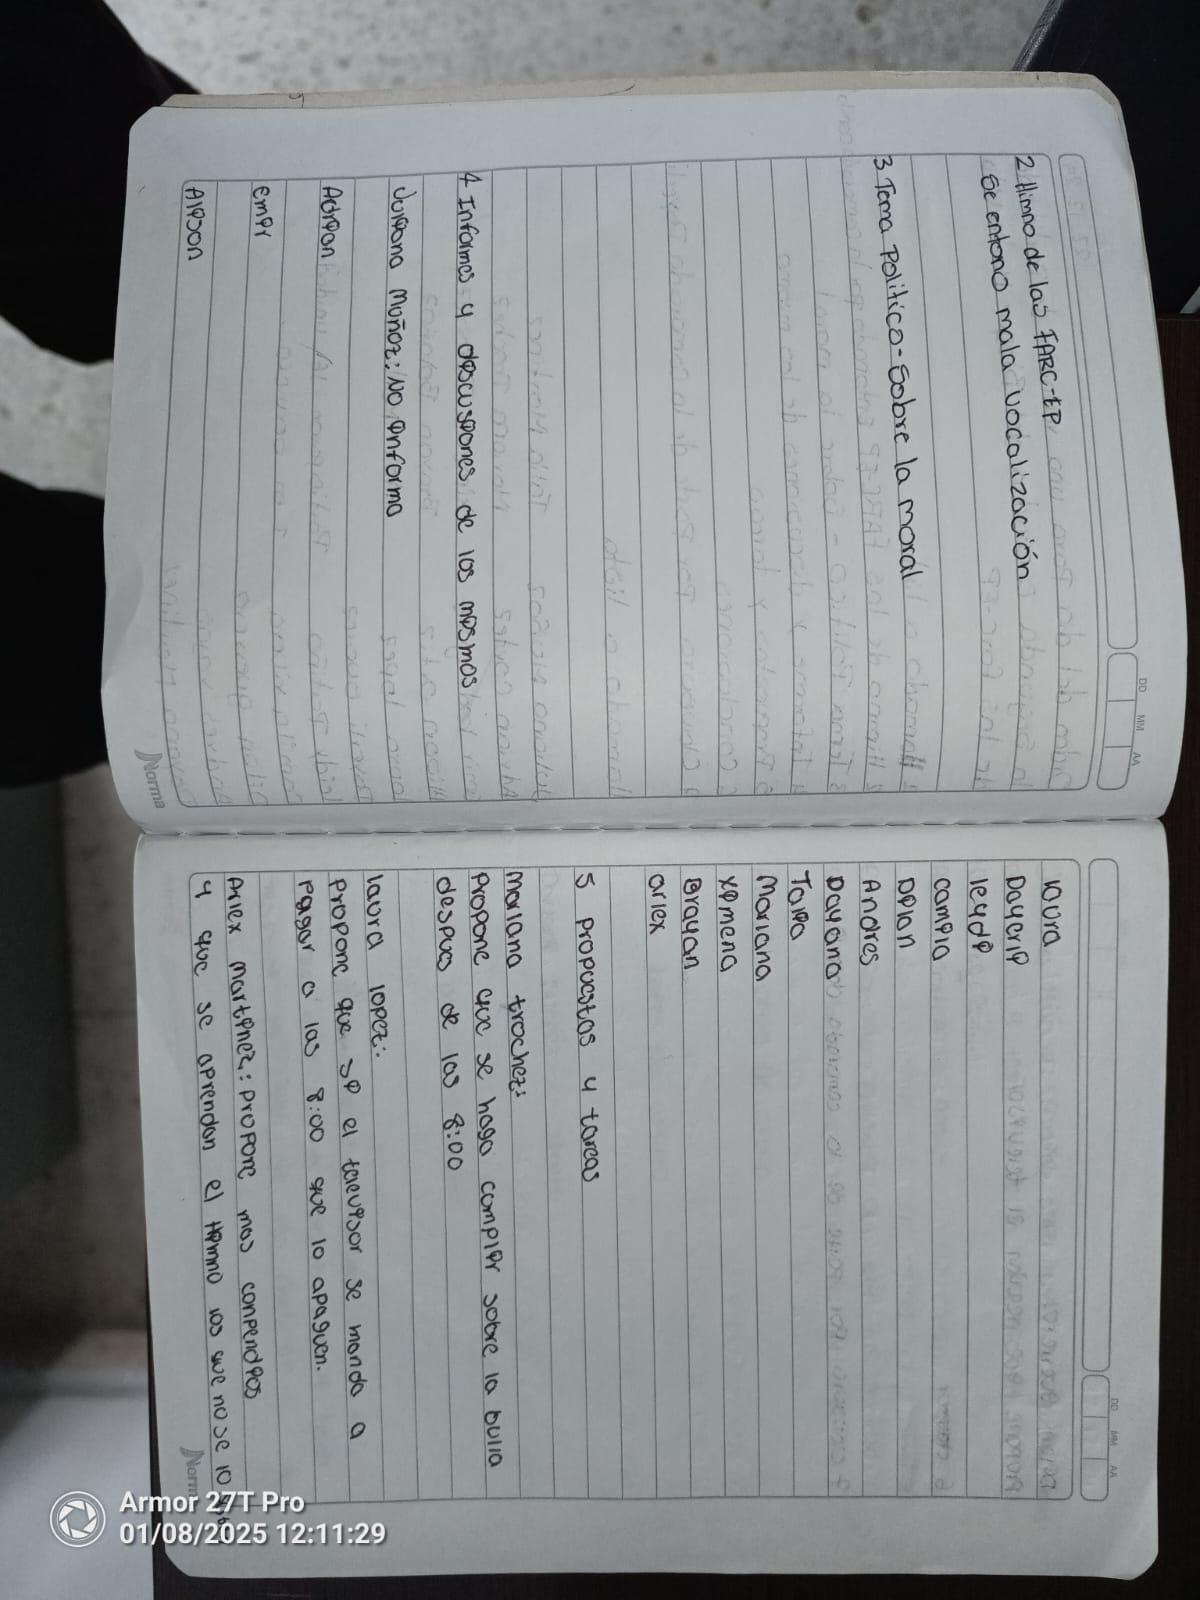 DD MM AA
2 Himno de las FARC-EP
Se entono mala vocalización
3 Tema Politico - Sobre la moral
4 Informes y descusiones de los mismos
Juliana Muñoz: No informo
Adrian
emir
Alison
Norma
DD MM AA
laura
Dayeris
leydi
camila
Dilan
Andres
Dayana
Talia
Mariana
ximena
Brayan
arlex
5 propuestas y tareas
Mariana trochez:
Propone que se haga complir sobre la bulla
despues de las 8:00
laura lopez:
propone que si el televisor se manda a
pagar a las 8:00 que lo apaguen.
Arlex martinez: propone mas conpendios
y que se aprendan el Himno los que no se lo
Norma
Armor 27T Pro
01/08/2025 12:11:29